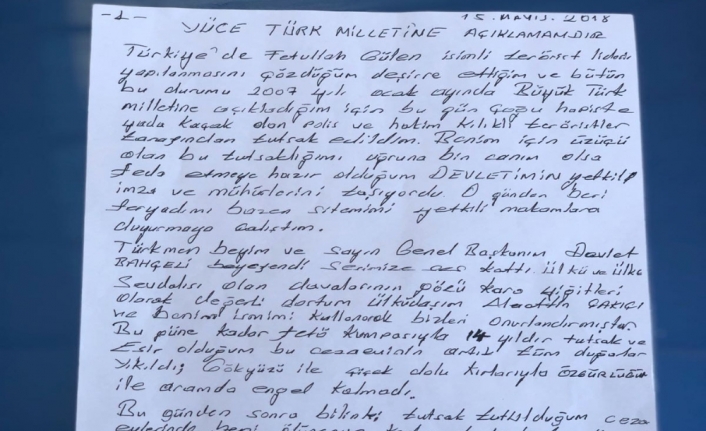 -1-
15. MAYIS. 2018
YÜCE TÜRK MİLLETİNE AÇIKLAMAMDIR
Türkiye'de Fetullah Gülen isimli terörist lideri
yapılanmasını çözdüğüm deşifre ettiğim ve bütün
bu durumu 2007 yılı ocak ayında Büyük Türk
milletine açıkladığım için bu gün çoğu hapiste
yada kaçak olan polis ve hakim kılıklı teröristler
tarafından tutsak edildim. Benim için üzücü
olan bu tutsaklığımı uğruna bin canım olsa
feda etmeye hazır olduğum DEVLETİMİN yetkili
imza ve mühürlerini taşıyordu. O günden beri
feryadımı bazen sitemimi yetkili makamlara
duyurmaya çalıştım.
Türkmen beyim ve sayın Genel Başkanım Devlet
BAHÇELİ beyefendi sesimize ses kattı. ülkü ve ülke
Sevdalısı olan davalarının gözü kara yiğitleri
olarak değerli dostum ülküdaşım Alaattin ÇAKICI
ve benim ismimi kullanarak bizleri onurlandırmıştır
Bu güne kadar fetö kumpasıyla 14 yıldır tutsak ve
Esir olduğum bu cezaevinin artık tüm duvarları
yıkıldı, Gökyüzü ile çiçek dolu kırlarıyla ÖZGÜRLÜĞÜM
ile aramda engel kalmadı.
Bu günden sonra bilinki tutsak tutulduğum ceza